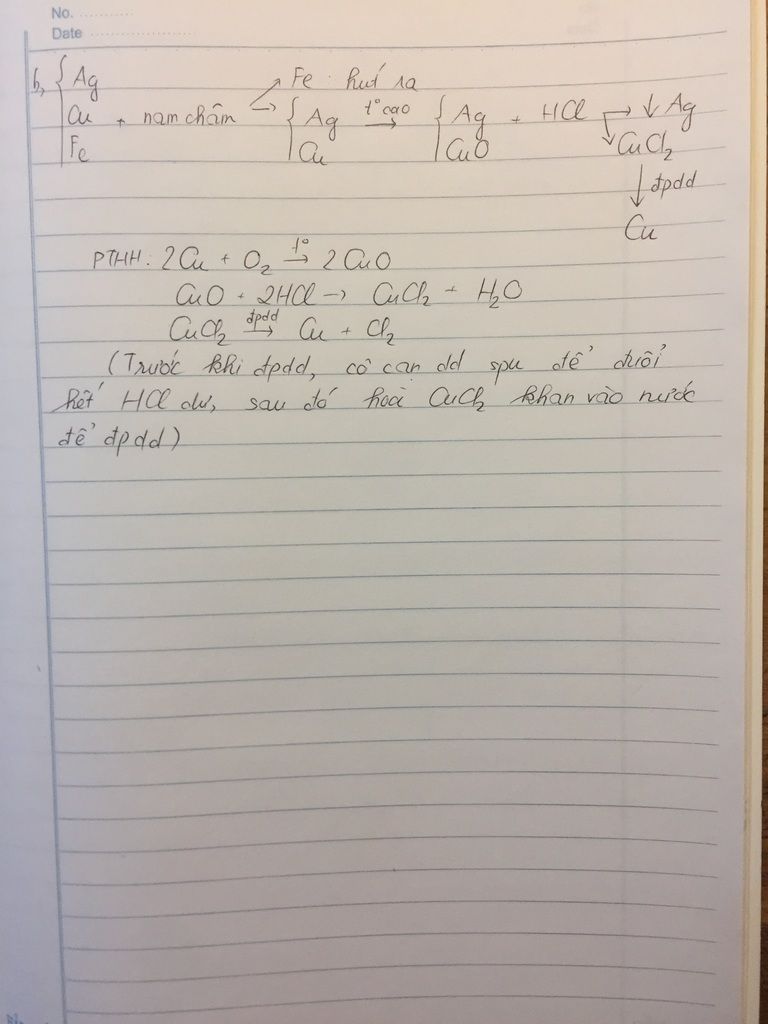 No. ............
Date ........................
b, { Ag Cu Fe + nam châm → Fe : hút ra
→ { Ag Cu t° cao → { Ag CuO + HCl → ↓ Ag
↓ CuCl₂
↓ đpdd
Cu
PTHH: 2Cu + O₂ t° → 2CuO
CuO + 2HCl → CuCl₂ + H₂O
CuCl₂ đpdd → Cu + Cl₂
(Trước khi đpdd, cô cạn dd spu để đuổi
hết HCl dư, sau đó hoà CuCl₂ khan vào nước
để đpdd)